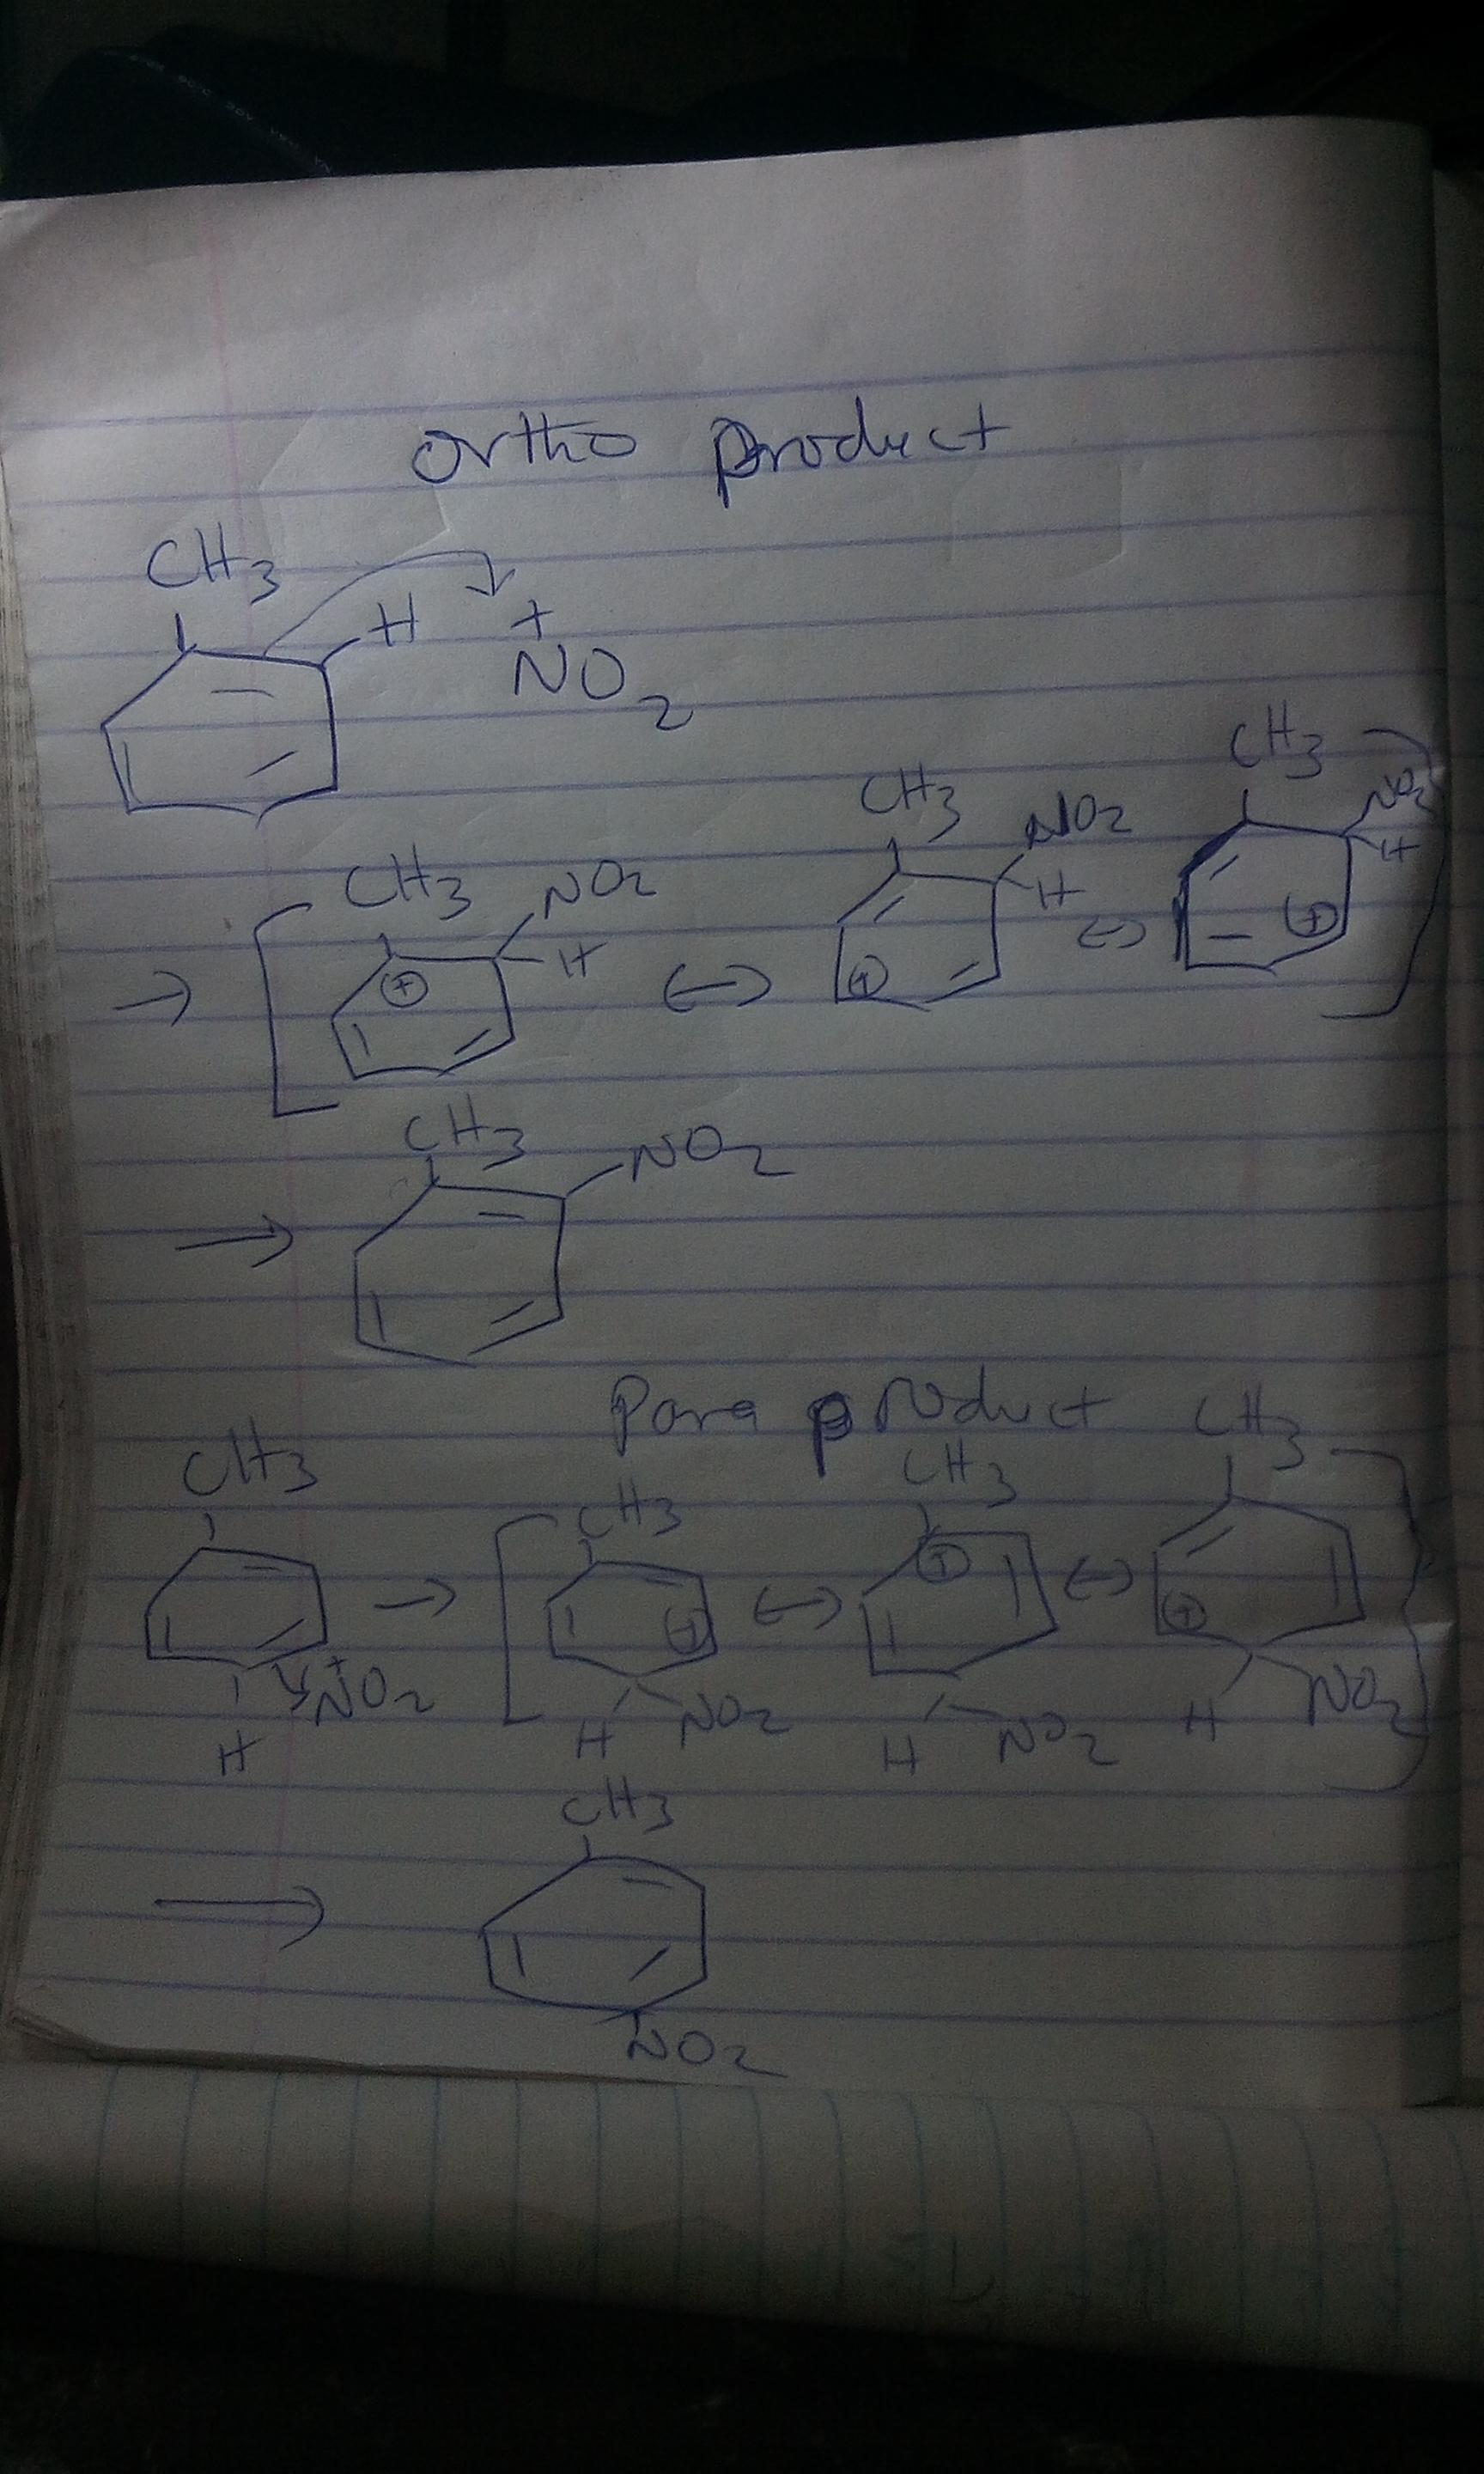 Ortho product
CH3
H
+
NO2
CH3 NO2 H + ↔ CH3 NO2 H + ↔ CH3 NO2 H +
→
CH3
NO2
→
Para product
CH3 → CH3 + ↔ CH3 + ↔ CH3 +
H +NO2 H NO2 H NO2 H NO2
CH3
→
NO2